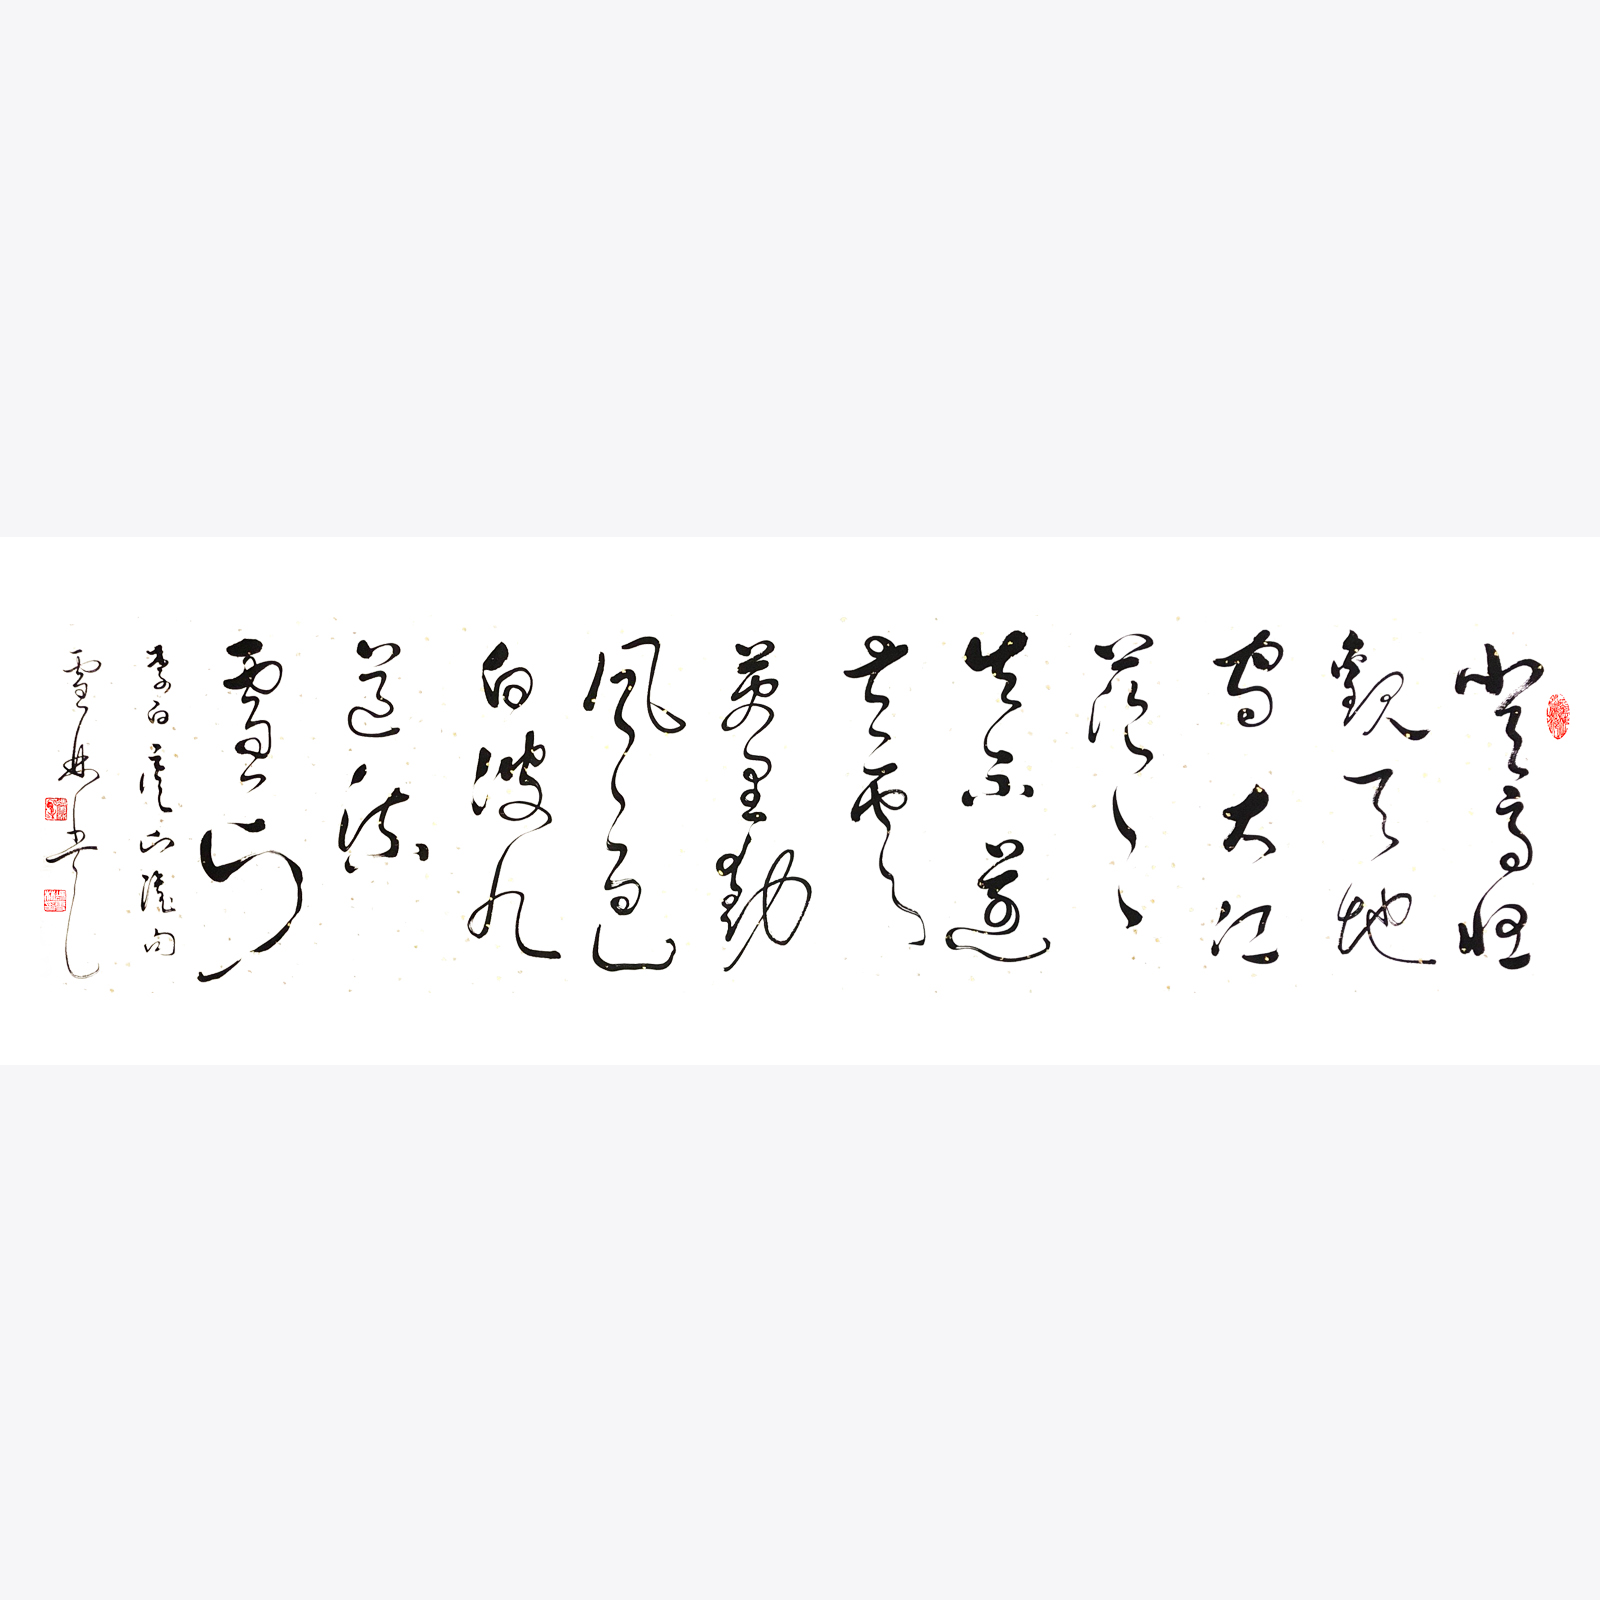 登高壮
觀天地
間大江
茫〻
去不還
黃雲
萬里動
風色
白波九
道流
雪山
李白廬山謠句
雪林書